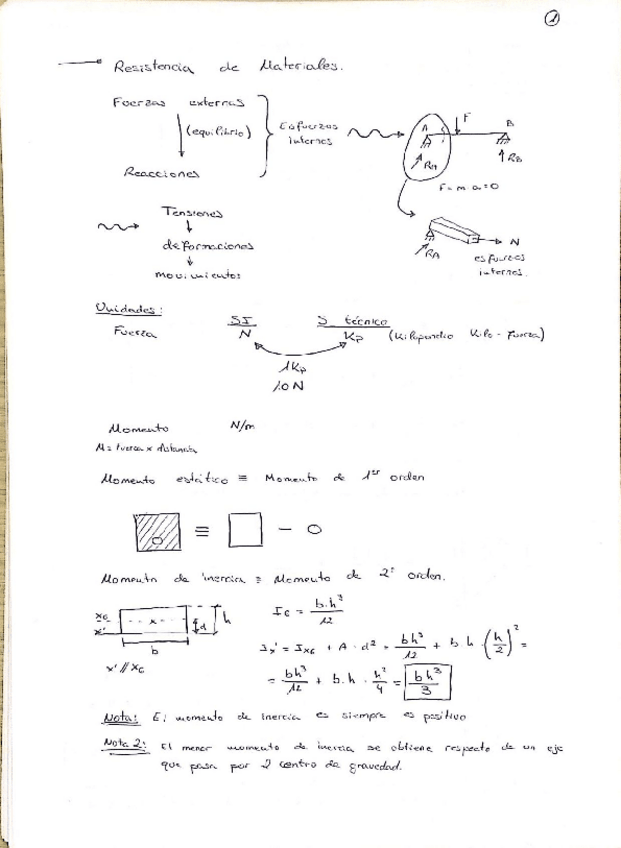 1
Resistencia de Materiales.
Fuerzas externas
(equilibrio)
Reacciones
Esfuerzos
internos
A F B
RA RB
F = m·a = 0
RA N
esfuerzos
internos.
Tensiones
↓
deformaciones
↓
movimientos
Unidades: SI S técnico
Fuerza N Kp (Kilopondio Kilo-fuerza)
1Kp
10N
Momento N/m
M = fuerza x distancia
Momento estático ≡ Momento de 1er orden
≡ −
Momento de inercia ≡ Momento de 2º orden.
xG x d h
x'
b
x' // xG
IG = b·h³/12
Ix' = IxG + A·d² = bh³/12 + b h · (h/2)² =
= bh³/12 + b·h · h²/4 = bh³/3
Nota: El momento de inercia es siempre es positivo
Nota 2: El menor momento de inercia se obtiene respecto de un eje
que pasa por centro de gravedad.